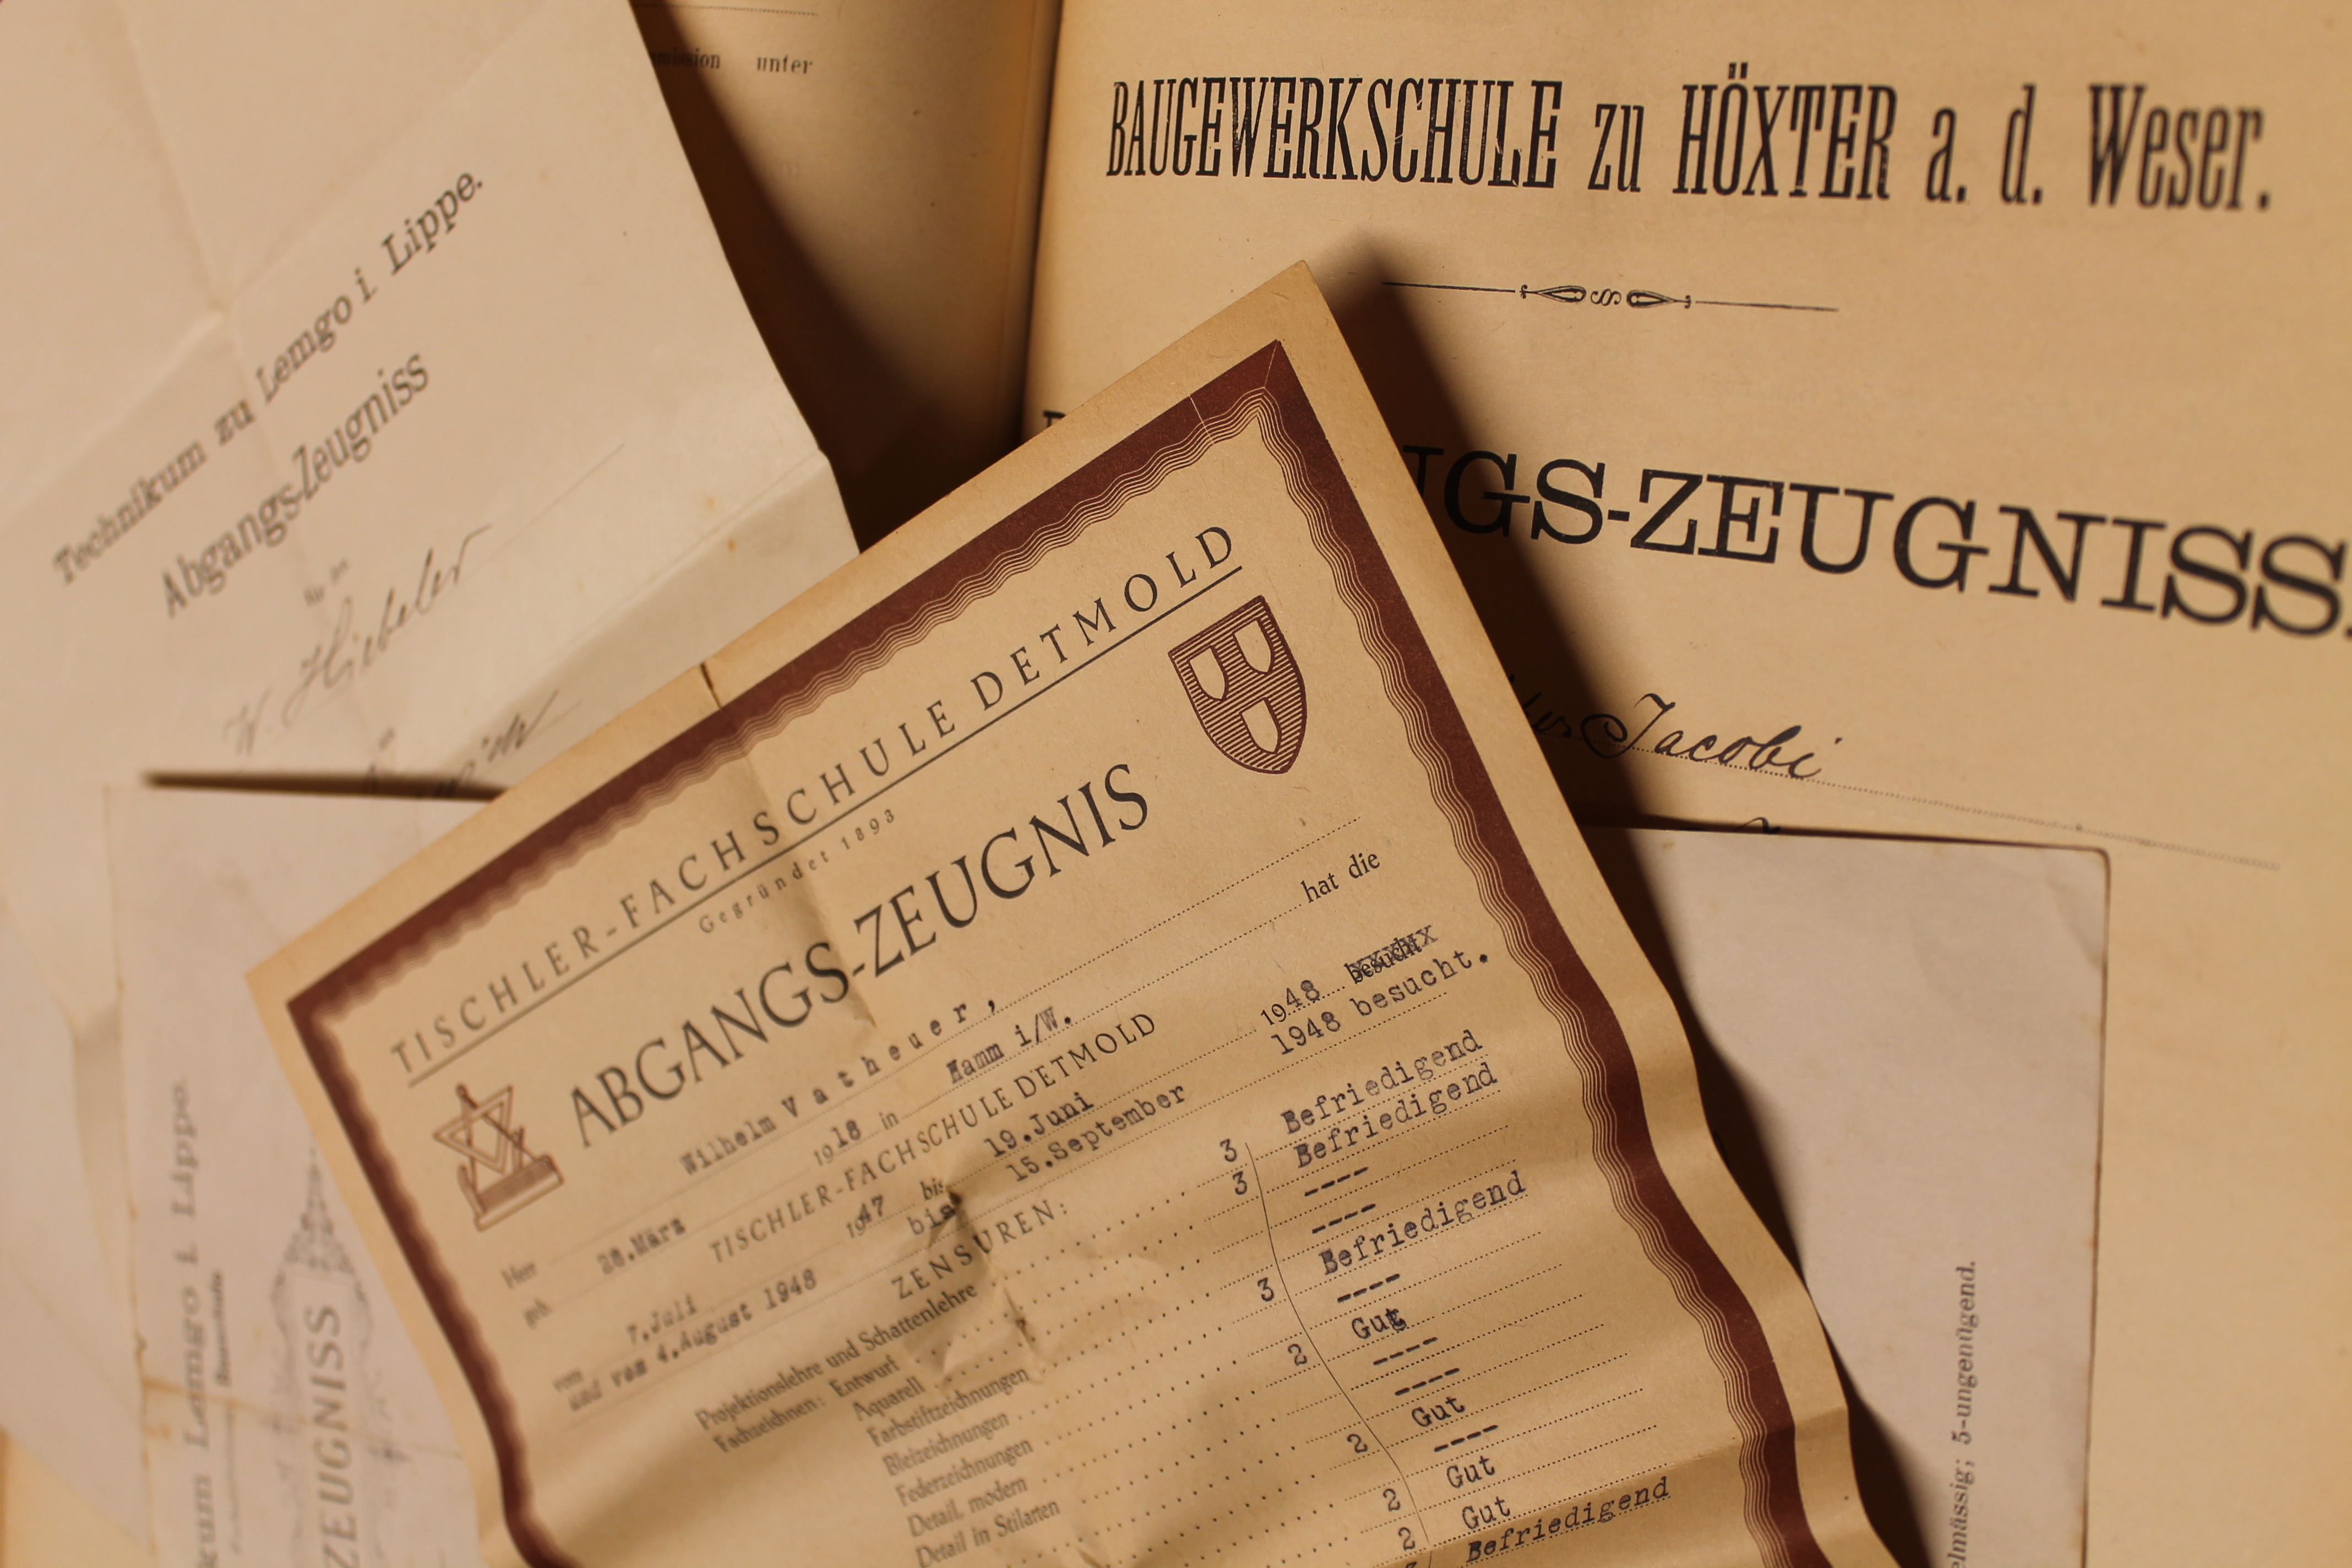 mission unter
BAUGEWERKSCHULE zu HÖXTER a. d. Weser.
GS-ZEUGNISS.
Jacobi
Technikum zu Lemgo i. Lippe.
Abgangs-Zeugniss
für den
W. Hiebeler
TISCHLER-FACHSCHULE DETMOLD
Gegründet 1893
ABGANGS-ZEUGNIS
Herr Wilhelm Vatheuer,
geb. 26.März 1918 in Hamm i/W. hat die
TISCHLER-FACHSCHULE DETMOLD
vom 7.Juli 1947 bis 19.Juni 1948 besucht
und vom 4.August 1948 bis 15.September 1948 besucht.
ZENSUREN:
Projektionslehre und Schattenlehre 3 Befriedigend
Fachzeichnen: Entwurf 3 Befriedigend
Aquarell ----
Farbstiftzeichnungen ----
Bleizeichnungen 3 Befriedigend
Federzeichnungen ----
Detail, modern 2 Gut
Detail in Stilarten ----
----
2 Gut
----
2 Gut
2 Gut
Befriedigend
kum Lemgo i. Lippe.
ZEUGNISS
elmässig; 5-ungenügend.